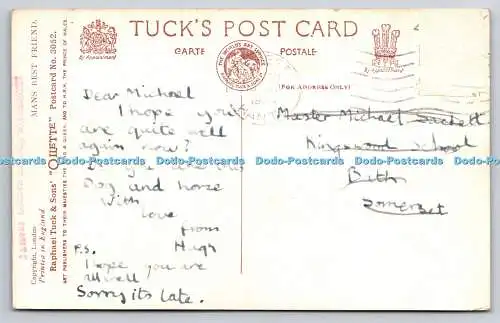 TUCK'S POST CARD
CARTE POSTALE
By Appointment
By Appointment
THE WORLD'S ART SERVICE
(FOR ADDRESS ONLY)
MAN'S BEST FRIEND.
Raphael Tuck & Sons' "OILETTE" Postcard No. 3052.
ART PUBLISHERS TO THEIR MAJESTIES THE KING & QUEEN, AND TO H.R.H. THE PRINCE OF WALES.
Copyright, London
Printed in England
Dear Michael
I hope you
are quite well
again now?
Dog and horse
With
love
from
Hugh
P.S.
I hope you are
well
Sorry its late.
Master Michael
Kingswood School
Bath
Somerset
Dodo-Postcards Dodo-Postcards Dodo-Postcards Dodo-Postcards Dodo-Postcards Dodo-Postcards